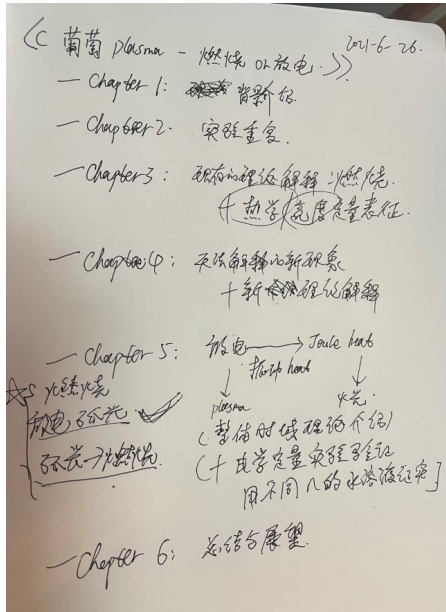 《葡萄 plasma - 燃烧 or 放电》 2021-6-26.
— Chapter 1: 背景介绍
— Chapter 2. 实验重复.
— Chapter 3: 现有的理论解释:燃烧.
+ 热学/亮度定量表征.
— Chapter 4: 无法解释的新现象
+ 新理论解释
— Chapter 5: 放电 → Joule heat
heat
plasma 火光
火燃烧
放电, 弧光
弧光→燃烧
(整体时域理论介绍)
(+ 电学定量实验验证
用不同 的水溶液证实]
— Chapter 6: 总结与展望